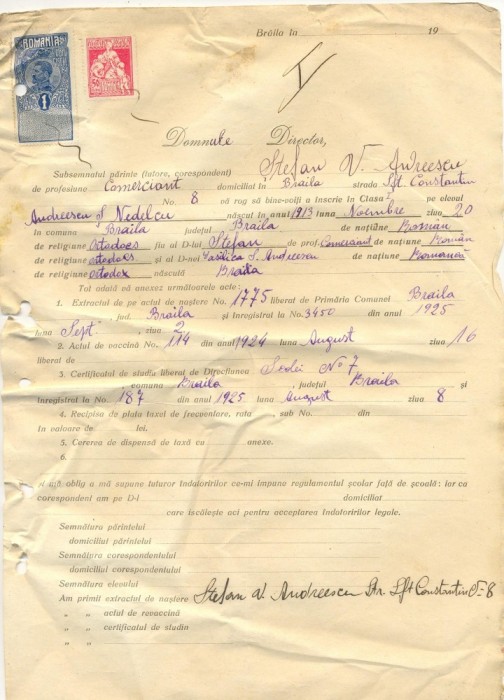 Brăila în 19
ROMANIA
1
Domnule Director,
Subsemnatul părinte (tutore, corespondent) Ștefan V. Andreescu
de profesiune Comerciant domiciliat în Braila strada Sft Constantin
No. 8 vă rog să bine-voiți a înscrie în Clasa I pe elevul
Andreescu Șt Nedelcu născut în anul 1913 luna Noembre ziua 20
în comuna Braila județul Braila de națiune Român
de religiune Ortodocs fiu al D-lui Ștefan de prof. Comerciant de națiune Român
de religiune ortodocs și al D-nei Vasilica Ș. Andreescu de națiune Romanăn
de religiune ortodox născută Braila
Tot odată vă anexez următoarele acte:
1. Extractul de pe actul de naștere No. 1775 liberat de Primăria Comunei Braila
, jud. Braila și înregistrat la No. 3450 din anul 1925
luna Sept. ziua 2
2. Actul de vaccină No. 114 din anul 1924 luna August ziua 16
liberat de
3. Certificatul de studii liberat de Direcțiunea Școlei No 7
, comuna Braila, județul Braila și
înregistrat la No. 187 din anul 1925 luna August ziua 8
4. Recipisa de plata taxei de frecuentare, rata , sub No. din
în valoare de lei.
5. Cererea de dispensă de taxă cu anexe.
6.
Mă oblig a mă supune tuturor îndatoririlor ce-mi impune regulamentul școlar față de școală: iar ca
corespondent am pe D-l domiciliat
care iscălește aci pentru acceptarea îndatoririlor legale.
Semnătura părintelui
domiciliul părintelui
Semnătura corespondentului
domiciliul corespondentului
Semnătura elevului
Am primit extractul de naștere Stefan V. Andreescu Str. Sft Constantin No 8
" " actul de revaccină
" " certificatul de studiu
" "